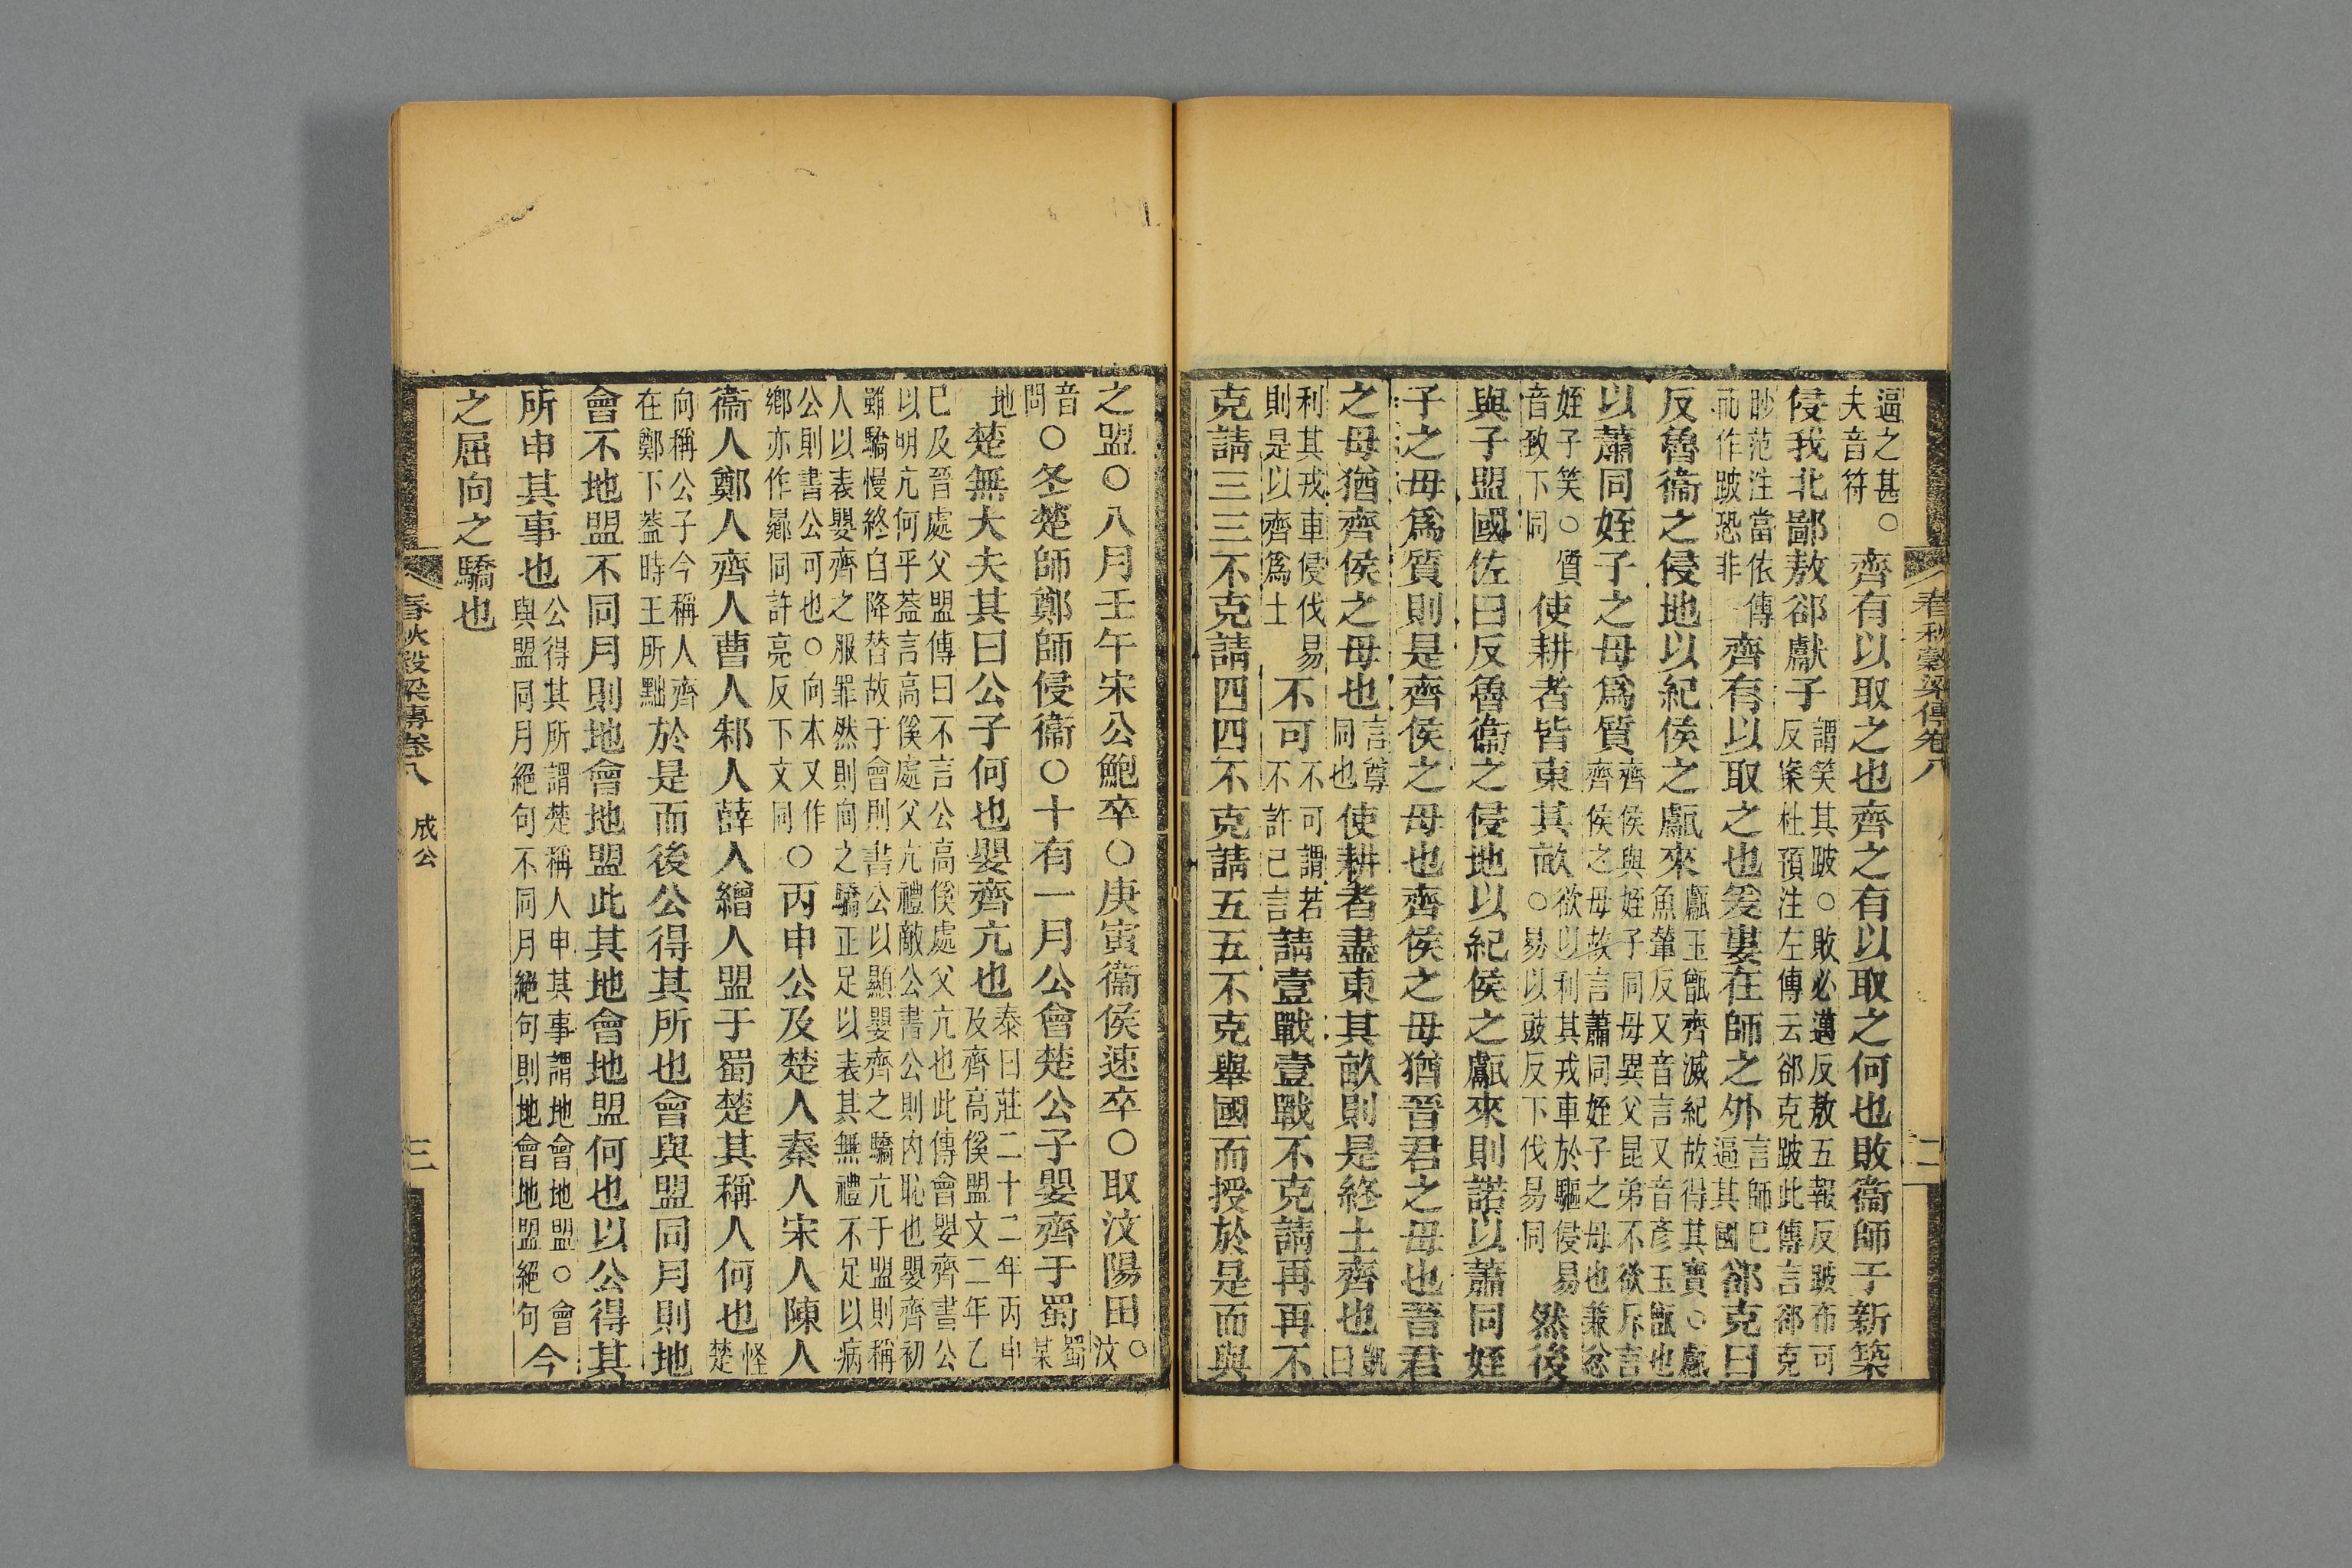 春秋穀梁傳卷八 二
逼之甚○夫音符齊有以取之也齊之有以取之何也敗衞師于新築
侵我北鄙敖郤獻子謂笑其跛○敗必邁反敖五報反跛布可反案杜預注左傳云郤克跛此傳言郤克
眇范注當依傳而作跛恐非齊有以取之也爰婁在師之外言師巳逼其國郤克曰
反魯衞之侵地以紀侯之甗來甗玉甑齊滅紀故得其寶○甗魚輦反又音言又音彥玉甑也
以蕭同姪子之母爲質齊侯與姪子同母異父昆弟不欲斥言齊侯之母故言蕭同姪子之母也兼忿
姪子笑○質音致下同使耕者皆東其畝欲以利其戎車於驅侵易○易以豉反下伐易同然後
與子盟國佐曰反魯衞之侵地以紀侯之甗來則諾以蕭同姪
子之母爲質則是齊侯之母也齊侯之母猶晉君之母也晉君
之母猶齊侯之母也言尊同也使耕者盡東其畝則是終土齊也凱曰
利其戎車侵伐易則是以齊爲土不可不可謂若不許己言請壹戰壹戰不克請再再不
克請三三不克請四四不克請五五不克舉國而授於是而與
之盟○八月壬午宋公鮑卒○庚寅衞侯速卒○取汶陽田○汶
音問○冬楚師鄭師侵衞○十有一月公會楚公子嬰齊于蜀蜀某
地楚無大夫其曰公子何也嬰齊亢也泰曰莊二十二年丙申及齊高傒盟文二年乙
巳及晉處父盟傳曰不言公高傒處父亢也此傳會嬰齊書公以明亢何乎葢言高傒處父亢禮敵公書公則内恥也嬰齊初
雖驕慢終自降替故于會則書公以顯嬰齊之驕亢于盟則稱人以表嬰齊之服罪然則向之驕正足以表其無禮不足以病
公則書公可也○向本又作鄉亦作曏同許亮反下文同○丙申公及楚人秦人宋人陳人
衞人鄭人齊人曹人邾人薛人繒人盟于蜀楚其稱人何也怪楚
向稱公子今稱人齊在鄭下葢時王所黜於是而後公得其所也會與盟同月則地
會不地盟不同月則地會地盟此其地會地盟何也以公得其
所申其事也公得其所謂楚稱人申其事謂地會地盟○會與盟同月絕句不同月絕句則地會地盟絕句今
之屈向之驕也
春秋穀梁傳卷八 成公 三